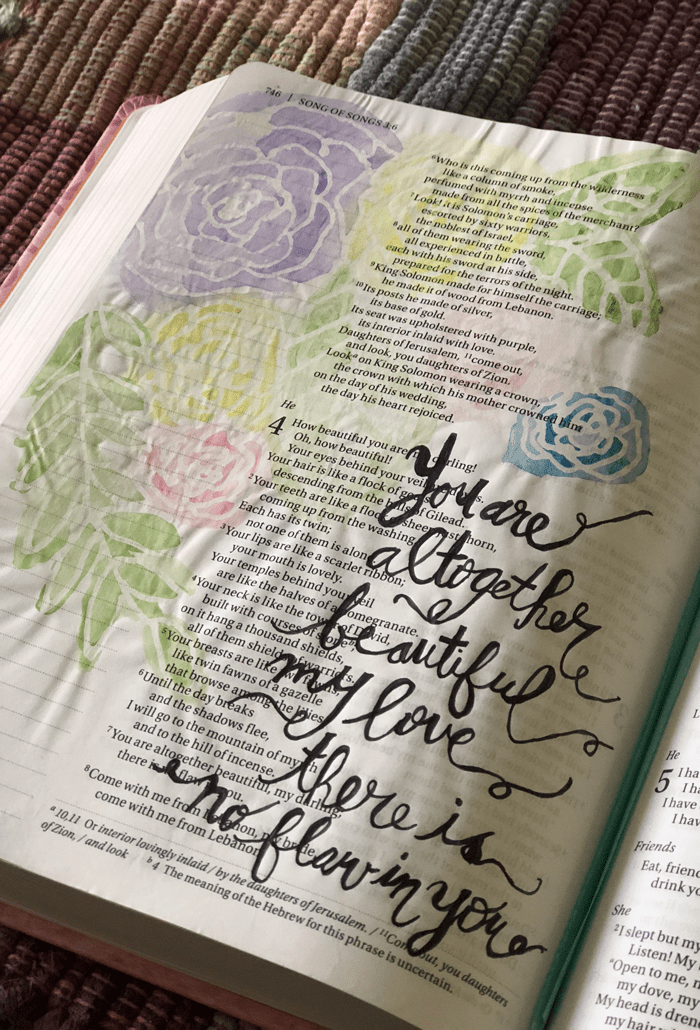 746 | SONG OF SONGS 3:6
⁶Who is this coming up from the wilderness
like a column of smoke,
perfumed with myrrh and incense
made from all the spices of the merchant?
⁷Look! It is Solomon's carriage,
escorted by sixty warriors,
the noblest of Israel,
⁸all of them wearing the sword,
all experienced in battle,
each with his sword at his side,
prepared for the terrors of the night.
⁹King Solomon made for himself the carriage;
he made it of wood from Lebanon.
¹⁰Its posts he made of silver,
its base of gold.
Its seat was upholstered with purple,
its interior inlaid with love.
Daughters of Jerusalem, ¹¹come out,
and look, you daughters of Zion.
Lookᵃ on King Solomon wearing a crown,
the crown with which his mother crowned him
on the day of his wedding,
the day his heart rejoiced.
He
4 How beautiful you are my darling!
Oh, how beautiful!
Your eyes behind your veil
Your hair is like a flock of
descending from the hills of Gilead.
²Your teeth are like a flock of sheep just shorn,
coming up from the washing.
Each has its twin;
not one of them is alone.
³Your lips are like a scarlet ribbon;
your mouth is lovely.
Your temples behind your veil
are like the halves of a pomegranate.
⁴Your neck is like the tower of David,
built with courses of
on it hang a thousand shields,
all of them shields of warriors.
⁵Your breasts are like
like twin fawns of a gazelle
that browse among the lilies.
⁶Until the day breaks
and the shadows flee,
I will go to the mountain of myrrh
and to the hill of incense.
⁷You are altogether beautiful, my darling;
there is flaw you.
⁸Come with me from Lebanon, my bride,
come with me from Lebanon
ᵃ 10,11 Or interior lovingly inlaid / by the daughters of Jerusalem. / ¹¹Come out, you daughters
of Zion, / and look ᵇ 4 The meaning of the Hebrew for this phrase is uncertain.
You are
altogether
beautiful
my love
there is
no flaw in you
He
5 I ha
I h
I have
I hav
Friends
Eat, friend
drink yo
She
²I slept but my
Listen! My
"Open to me, n
my dove, my
My head is dren
my hair